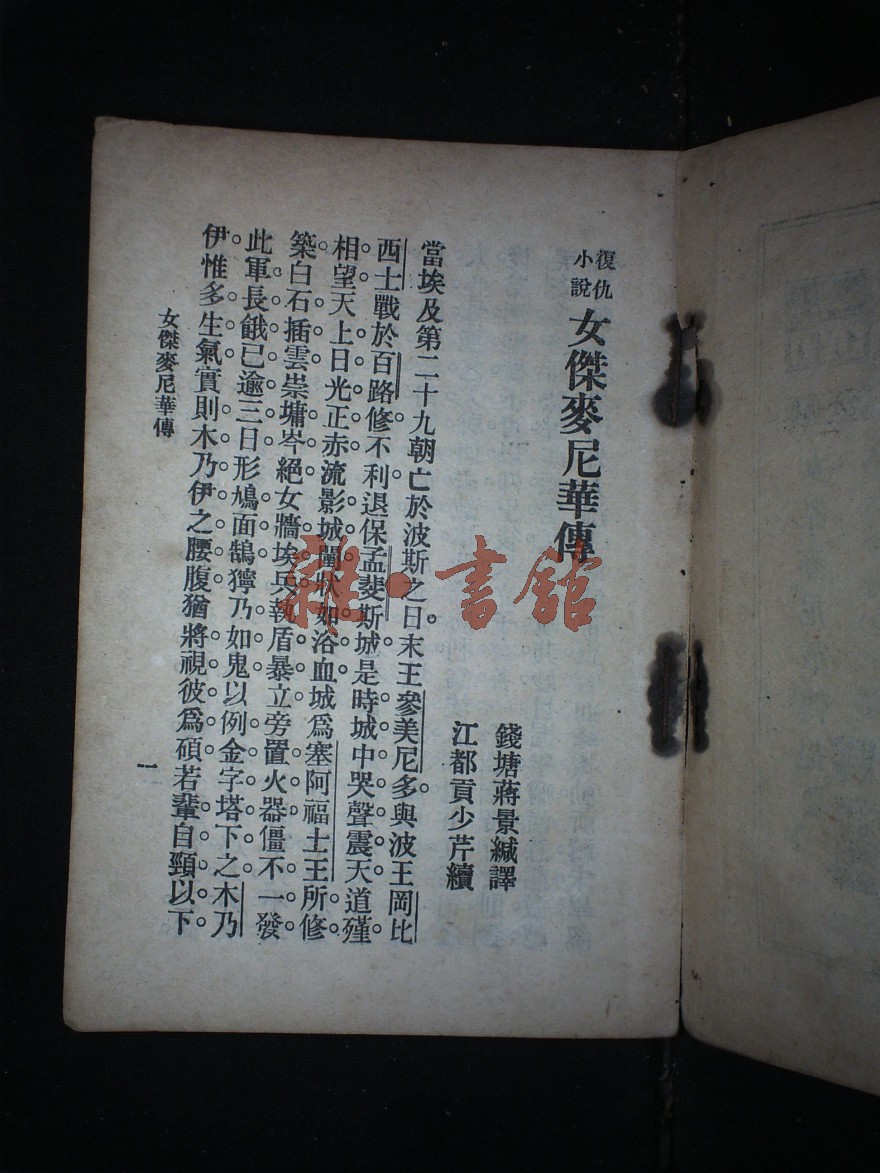 復仇
小說
女傑麥尼華傳
錢塘蔣景緘譯
江都貢少芹續
當埃及第二十九朝亡於波斯之日末王參美尼多與波王岡比
西士戰於百路修不利退保孟斐斯城是時城中哭聲震天道殣
相望天上日光正赤流影城闉狀如浴血城爲塞阿福士王所修
築白石插雲祟墉岑絕女牆埃兵執盾暴立旁置火器僵不一發
此軍長餓已逾三日形鳩面鵠獰乃如鬼以例金字塔下之木乃
伊惟多生氣實則木乃伊之腰腹猶將視彼爲碩若輩自頸以下
女傑麥尼華傳
一
雜·書館